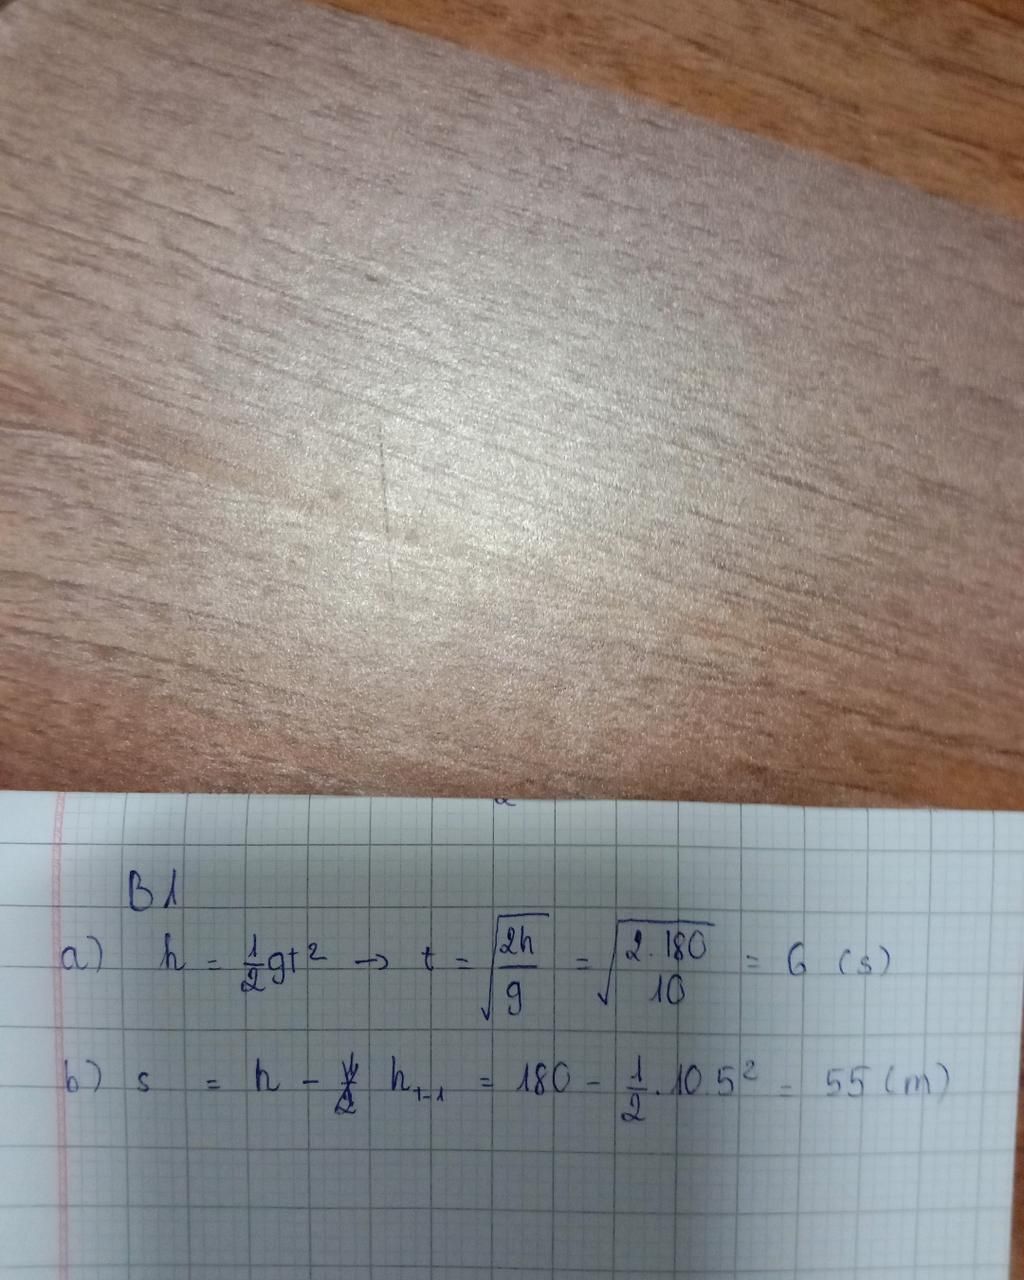 B1
a) h = 1/2 gt² → t = √(2h/g) = √(2.180/10) = 6 (s)
b) s = h - h t-1 = 180 - 1/2 . 10 5² = 55 (m)